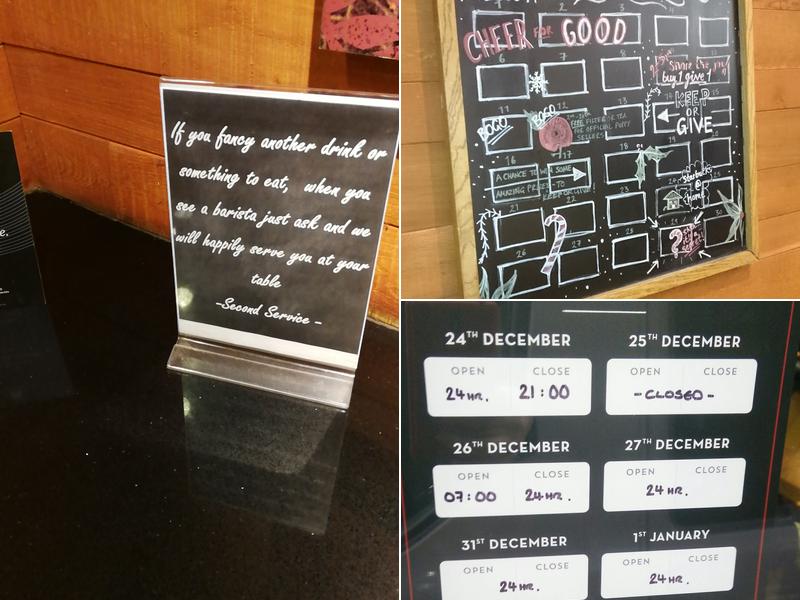 If you fancy another drink or
something to eat, when you
see a barista just ask and we
will happily serve you at your
table
-Second Service -
CHEER FOR GOOD
2
6
7
8
buy 1 give 1
KEEP
OR
GIVE
11
BOGO
BOGO
12
13
14
15
16
17
18
A CHANCE TO WIN SOME
AMAZING PRIZES - TO
KEEP OR GIVE!
Starbucks
@
Home
21
22
23
26
27
28
30
24TH DECEMBER
OPEN CLOSE
24HR. 21:00
25TH DECEMBER
OPEN CLOSE
-CLOSED-
26TH DECEMBER
OPEN CLOSE
07:00 24HR.
27TH DECEMBER
OPEN CLOSE
24HR.
31ST DECEMBER
OPEN CLOSE
24HR.
1ST JANUARY
OPEN CLOSE
24HR.